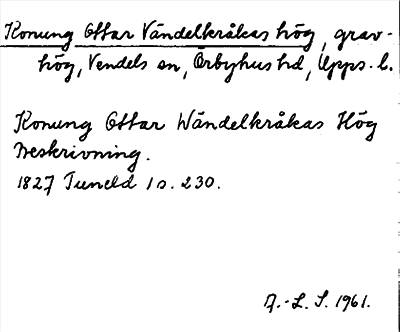 Konung Ottar Vändelkråkas hög, grav-
hög, Vendels sn, Örbyhus hd, Upps. l.
Konung Ottar Wändelkråkas Hög
Beskrivning.
1827 Tuneld 1 s. 230.
A.-L. S. 1961.